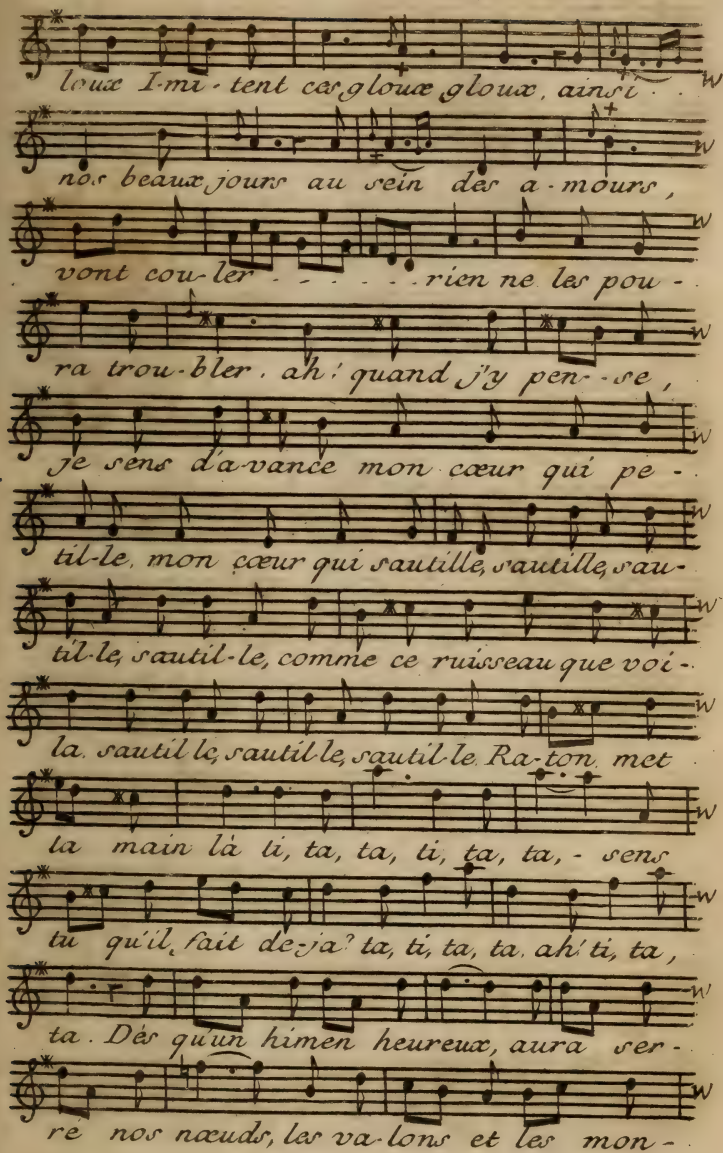 loux I-mi-tent ces gloux gloux, ainsi
nos beaux jours au sein des a-mours,
vont cou-ler . . . . . . rien ne les pou-
ra trou-bler. ah! quand j'y pen--se,
je sens d'a-vance mon cœur qui pe-
til-le, mon cœur qui sautille, sautille, sau-
til-le, sautil-le, comme ce ruisseau que voi-
la. sautil-le, sautil-le, sautil-le. Ra-ton, met
ta main là ti, ta, ta, ti, ta, ta, - sens
tu qu'il fait de-ja? ta, ti, ta, ta, ah! ti, ta,
ta. Dés qu'un himen heureux, aura ser-
ré nos nœuds, les va-lons et les mon-